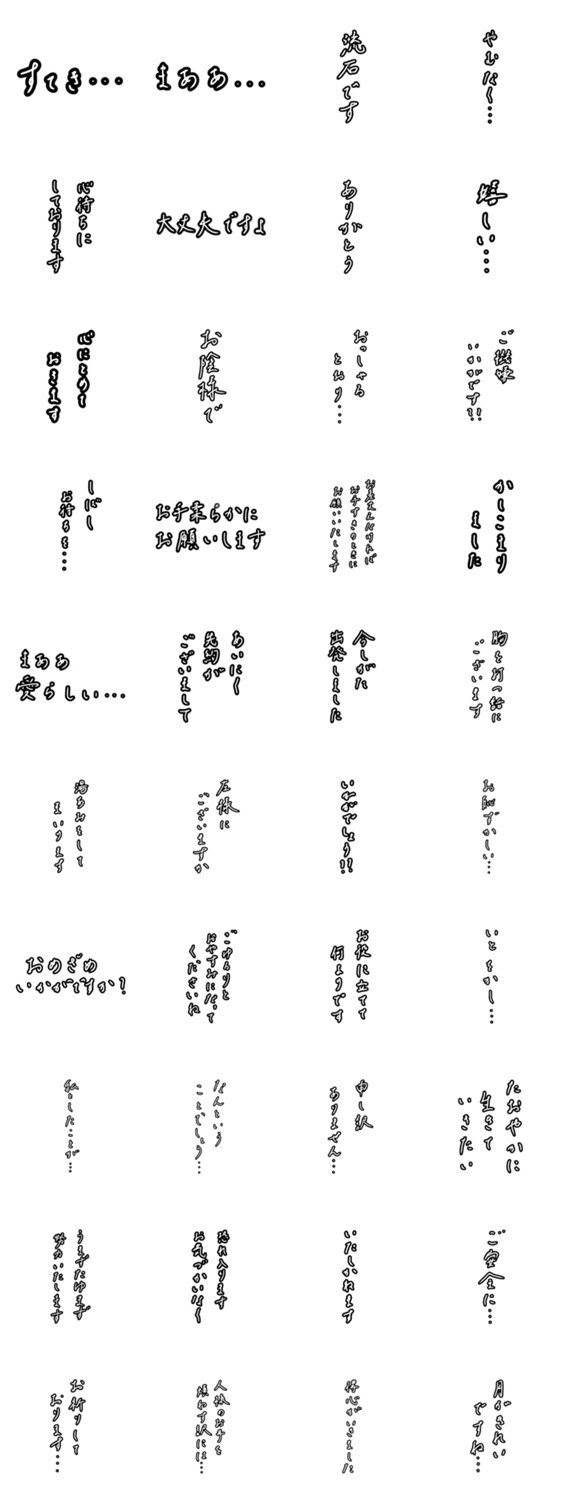 すてき…
まああ…
流石です
やむなく…
心待ちに
しております
大丈夫ですよ
ありがとう
嬉しい…
心にとめて
おきます
お陰様で
おっしゃる
とおり…
ご機嫌
いかがです!!
しばし
お待ちを…
お手柔らかに
お願いします
お差支えなければ
お手すきのときに
お願いいたします
かしこまり
ました
まああ
愛らしい…
あいにく
先約が
ございまして
今しがた
出発しました
胸を打つ話に
ございます
湯あみをして
まいります
左様に
ございますか
いかがでしょう!!
お恥ずかしい…
おめざめ
いかがですか?
ごゆるりと
おやすみになって
くださいね
お役に立てて
何よりです
いとをかし…
私としたことが…
なんという
ことでしょう…
申し訳
ありません…
たおやかに
生きて
いきたい
うまずたゆまず
努力いたします
恐れ入ります
お気づかいなく
いたしかねます
ご安全に…
お祈りして
おります…
人様のお手を
煩わす訳には…
得心がいきました
月がきれい
ですね…